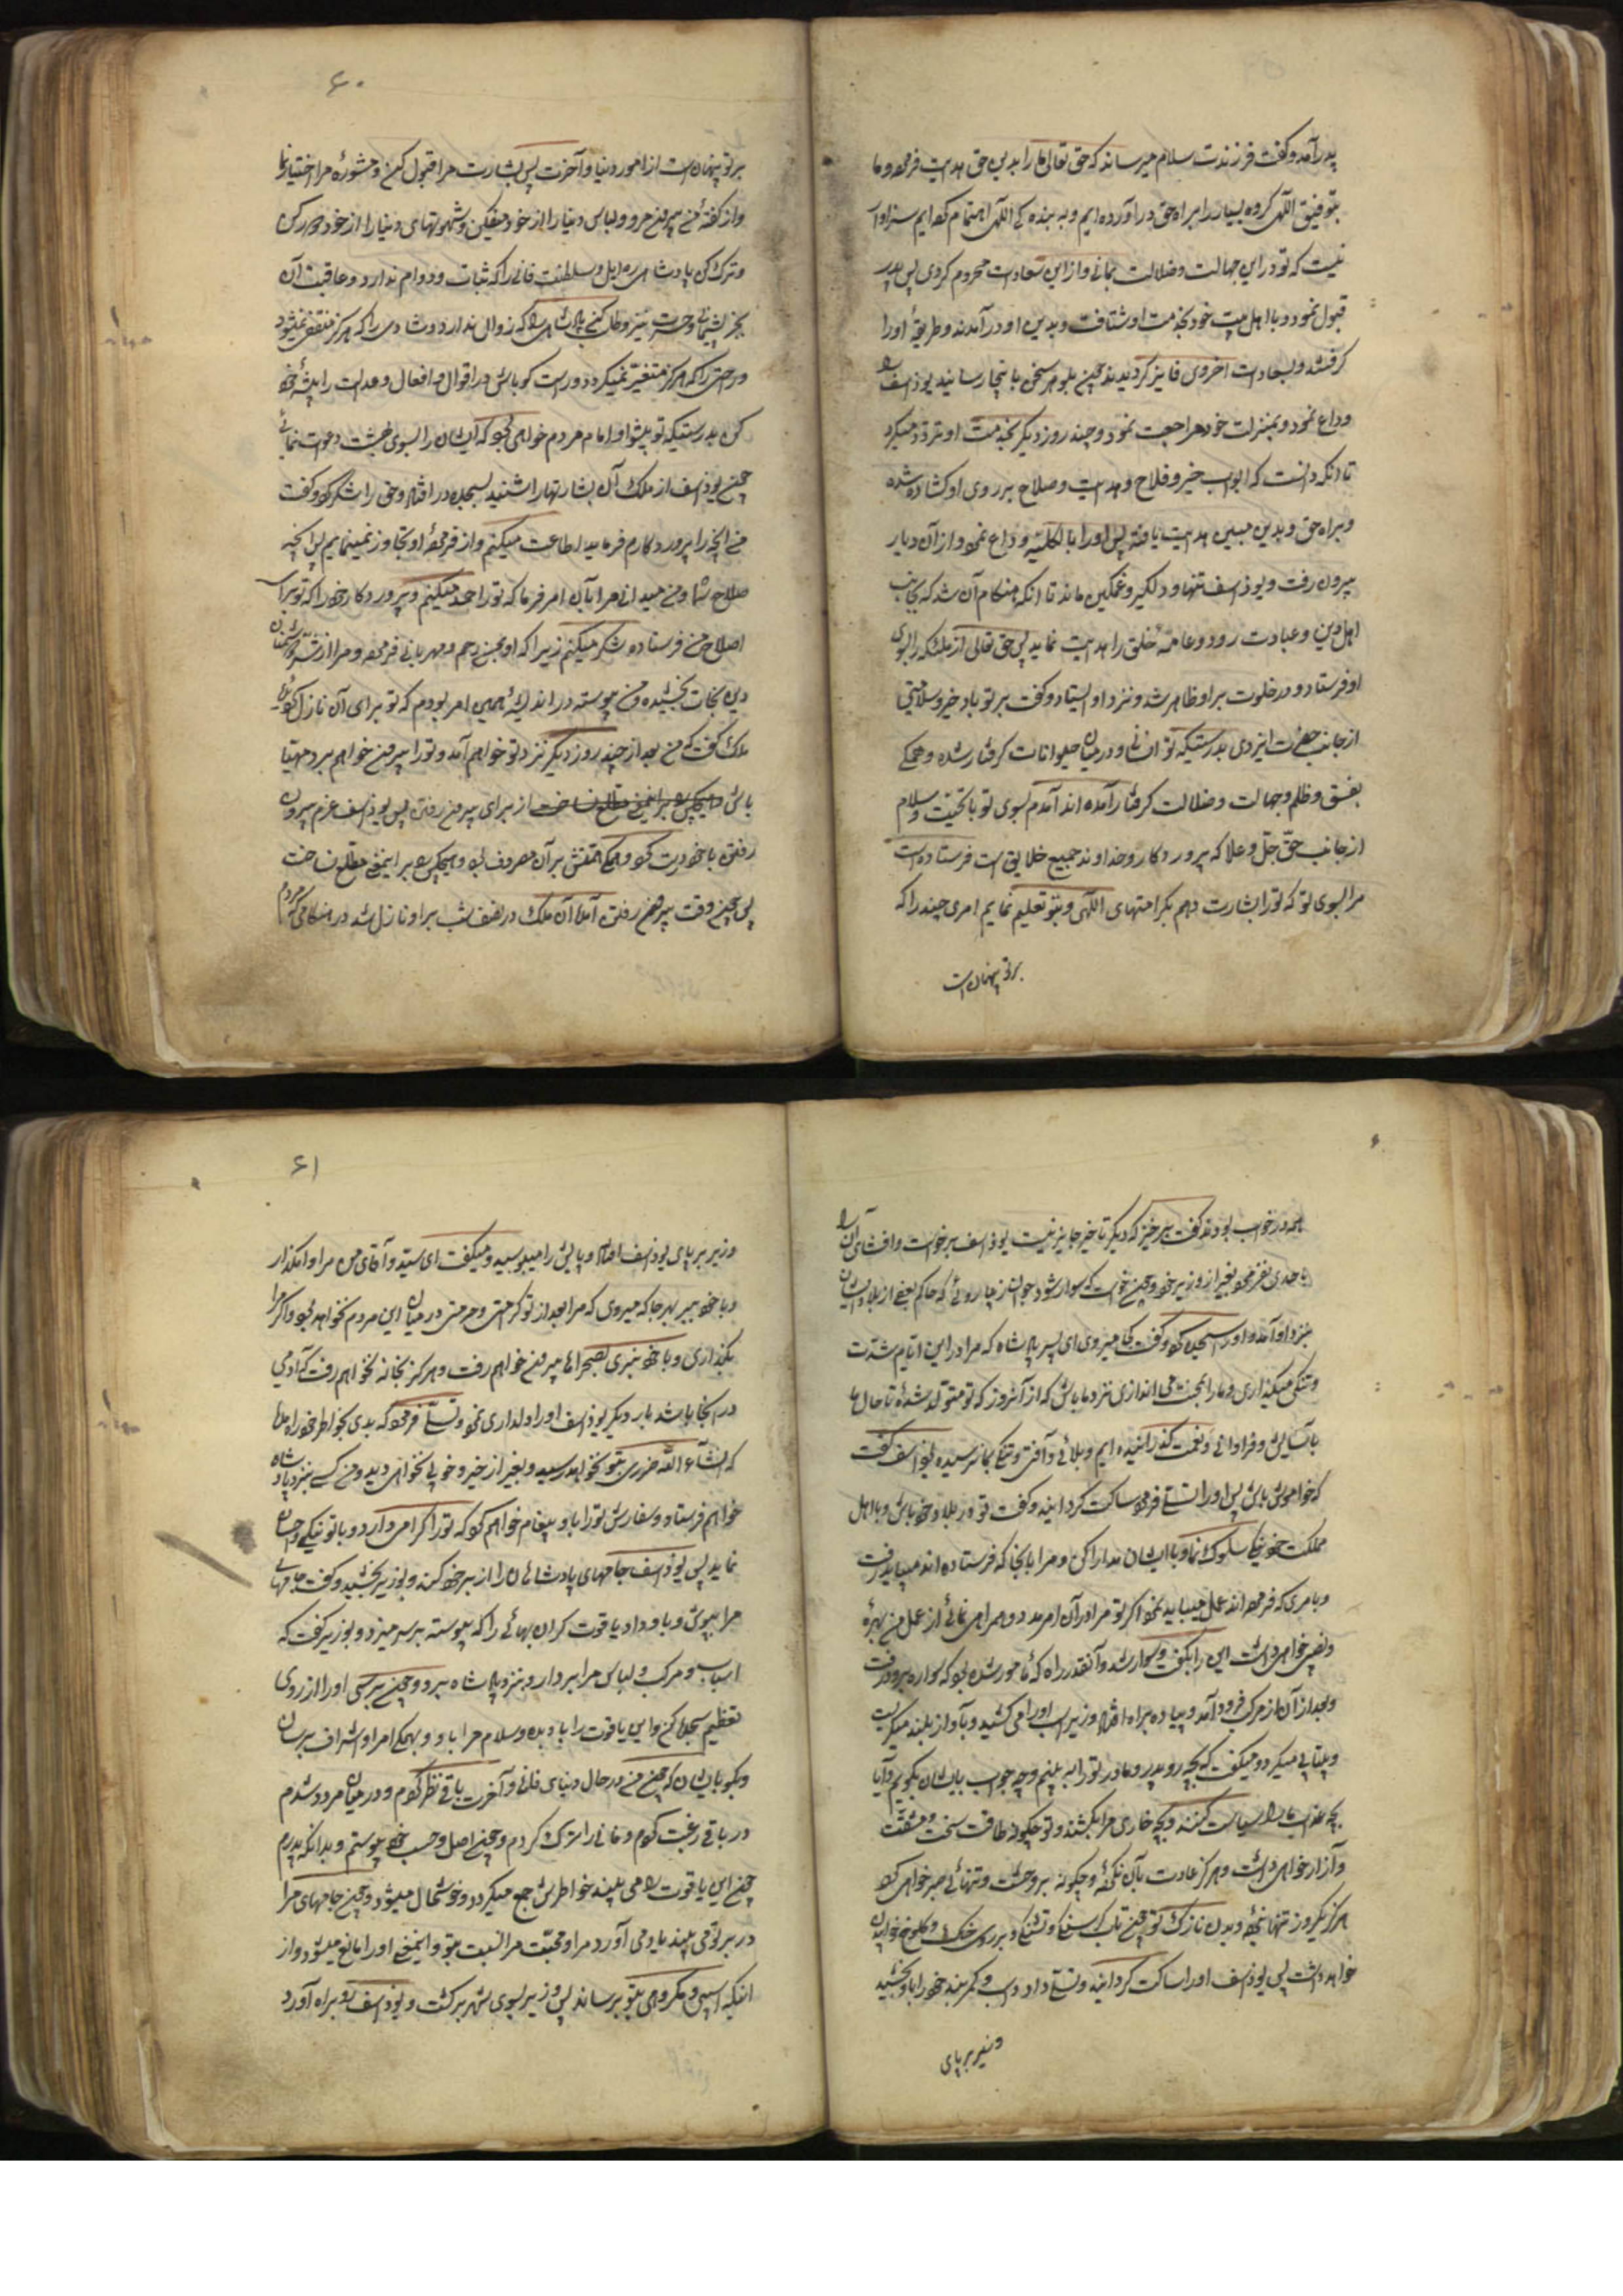 پدر آمد و گفت فرزندت سلام میرساند که حق تعالی ما را بدین حق هدایت فرموده و ما
بتوفیق الٓهی گروه بسیار را براه حق در آورده ایم و به بنده کے الٓهی اهتمام کرده ایم سزاوار
نیست که تو در این جهالت و ضلالت بمانی و از این سعادت محروم گردی پس پدر
قبول نمود و با اهل بیت خود بخدمت او شتافت و بدین او در آمدند و طریقهٔ او را
گرفتند و بسعادت اخروی فایز گردیدند چون بلوهر سخن باینجا رسانید یوذاسف را
وداع نمود و بمنزلت خود مراجعت نمود و چند روز دیگر بخدمت او تردّد میکرد
تا انکه دانست که ابواب خیر و فلاح و هدایت و صلاح بر روی او کشاده شده
و براه حق و بدین مبین هدایت یافته پس او را بالکلیّه وداع نمود و از آن دیار
بیرون رفت و یوذاسف تنها و دلگیر و غمگین ماند تا انکه هنگام آن شد که بجانب
اهل دین و عبادت رود و عامّهٔ خلق را هدایت نماید پس حق تعالی از ملئکه را بسوی
او فرستاد و در خلوت بر او ظاهر شد و نزد او ایستاد و گفت بر تو باد خیر و سلامتی
از جانب حضرت ایزدی بدرستیکه تو انسانی و در میان حیوانات گرفتار شده و همگے
بفسق و ظلم و جهالت و ضلالت گرفتار آمده اند آمدم بسوی تو با تحیّت و سلام
از جانب حقّ جلّ و علا که پروردگار و خداوند جمیع خلایق است فرستاده است
مرا بسوی تو که تو را بشارت دهم بکرامتهای الٓهی و بتو تعلیم نمایم امری چند را که
بر تو پنهان است
۶۰
بر تو پنهان است از امور دنیا و آخرت پس بشارت مرا قبول کن و مشورهٔ مرا اختیار نما
و از گفتهٔ من بیرون مرو و لباس دنیا را از خود بیفکن و شهوتهای دنیا را از خود دور کن
و ترک کن پادشاهی زایل و سلطنت فانی را که ثبات و دوام ندارد و عاقبت آن
بجز پشیمانی و حسرت نیز و طلب کن پادشاهی را که زوال ندارد و شادی را که هرگز منقضی نمیشود
و راحتی را که هرگز متغیّر نمیگردد و راست گو باش در اقوال و افعال و عدالت را پیشهٔ خود
کن بدرستیکه تو پیشوا و امام مردم خواهی بود که ایشان را بسوی بهشت دعوت نمائی
چون یوذاسف از ملک آن بشارتها را شنید بسجده در افتاد و حق را شکر کرد و گفت
من آنچه را پروردگارم فرماید اطاعت میکنم و از فرمودهٔ او تجاوز نمینمایم پس آنچه
صلاح شما و من میدانی مرا بآن امر فرما که تو را حمد میکنم و پروردگار خود را که تو را برای
اصلاح من فرستاده شکر میکنم زیرا که او بمن رحم و مهربانی فرموده و مرا از شرّ دشمنان
دین نجات بخشیده و من پیوسته در اندیشهٔ همین امر بودم که تو برای آن نازل گردیدهٔ
ملک گفت که من بعد از چند روز دیگر نزد تو خواهم آمد و تو را بیرون خواهم برد مهیّا
باش از برای بیرون رفتن پس یوذاسف عزم بیرون
رفتن با خود درست کرد و همگی همّتش بر آن مصروف بود و هیچکس را بر اینمعنی مطلع نساخت
پس چون وقت بیرون رفتن آمد آن ملک در نصف شب بر او نازل شد در هنگامی که مردم
همه در خواب بودند گفت برخیز که دیگر تاخیر جایز نیست یوذاسف برخواست و افشای آن را
باحدی نفرمود بغیر از وزیر خود و چون خواست که سوار شود جوان زیبا روئی که حاکم بعضی از بلاد ایشان
نزد او آمد و او را سجده کرد و گفت کجا میروی ای پسر پادشاه که مرا در این ایّام شدّت
و تنگی میگذاری و ما را بمحنت می اندازی نزد ما باش که از آنروز که تو متولّد شدهٔ تا حال ما
بآسایش و فراوانی و نعمت گذرانیده ایم و بلائی و آفتی و تنگی بما نرسیده یوذاسف گفت
که خاموش باش پس او را تسلّی فرمود ساکت گردانید و گفت تو در بلاد خود باش و با اهل
مملکت خود نیکی سلوک نما و با ایشان مدارا کن و مرا بآنجا که فرستاده اند میباید رفت
و بامری که فرموده اند عمل میباید نمود اگر تو مرا در آن امر مدد و همراهی نمائی از عمل من بهرهٔ
و نصیبی خواهی داشت این را بگفت و سوار شد و آنقدر راه که مامور شده بود که سواره برود رفت
و بعد از آن از مرکب فرود آمد و پیاده براه افتاد و وزیر اسب او را می کشید و بآواز بلند میگریست
و بیتابی میکرد و میگفت که بچه رو پدر و مادر تو را به بینم و چه جواب بایشان بگویم و آیا
بچه عذاب مرا سیاست کنند و بچه خاری مرا بکشند و تو چگونه طاقت سختی و مشقّت
و آزار خواهی داشت و هرگز عادت بآن نکردهٔ و چگونه بر وحشت و تنهائی صبر خواهی کرد
هرگز یکروز تنها نبودهٔ و بدن نازک تو چون تاب گرسنگی و تشنگی و بر روی خاک و کلوخ خوابیدن
خواهد داشت پس یوذاسف او را ساکت گردانید و تسلّی داد و اسب و کمربند خود را باو بخشید
وزیر بر پای
۶۱
وزیر بر پای یوذاسف افتاد و پایش را میبوسید و میگفت ای سیّد و آقای من مرا وا مگذار
و با خود ببر بهر جا که میروی که مرا بعد از تو کرامتی و حرمتی در میان این مردم نخواهد بود و اگر مرا
بگذاری و با خود نبری بصحراها بیرون خواهم رفت و هرگز بخانه نخواهم رفت که آدمی
در آنجا باشد بار دیگر یوذاسف او را دلداری نمود و تسلّی فرمود که بدی بخاطر خود راه مده
که انشآء الله ضرری بتو نخواهد رسید و بغیر از خیر و خوبی نخواهی دید و من کسی بنزد پادشاه
خواهم فرستاد و سفارش تو را باو پیغام خواهم کرد که تو را گرامی دارد و با تو نیکی و احسان
نماید پس یوذاسف جامهای پادشاهان را از بر خود کند و بوزیر بخشید و گفت جامهای
مرا بپوش و باو داد یاقوت گران بهائی را که پیوسته بر سر میزد و بوزیر گفت که
اسباب و مرکب و لباس مرا بردار و بنزد پادشاه ببر و چون برسی او را از روی
تعظیم سجده کن و این یاقوت را باو بده و سلام مرا باو و بهمگی امرا و اشراف برسان
و بگو بایشان که چون من در حال دنیای فانی و آخرت باقی نظر کردم و در میان مردد شدم
در باقی رغبت کردم و فانی را ترک کردم و چون اصل و حسب خود پیوستم و بدانکه پدرم
چون این یاقوت را می بیند خواطرش جمع میگردد و خوشحال میشود و چون جامهای مرا
در بر تو می بیند یاد می آورد مرا و محبّت مرا نسبت بتو و اینمعنی او را مانع میشود از
اینکه آسیبی و مکروهی بتو برساند پس وزیر بسوی شهر برگشت و یوذاسف رو براه آورد